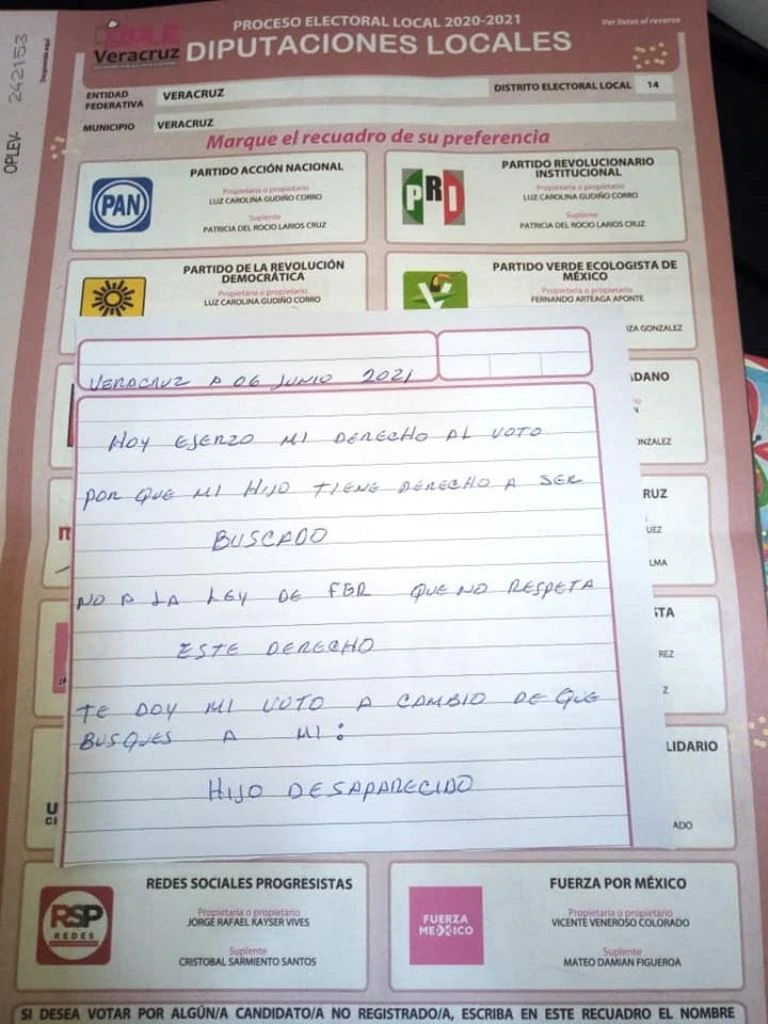 OPLEV- 242153
Desprenda aquí
OPLE
Veracruz
PROCESO ELECTORAL LOCAL 2020-2021
Ver listas al reverso
DIPUTACIONES LOCALES
ENTIDAD FEDERATIVA
VERACRUZ
DISTRITO ELECTORAL LOCAL 14
MUNICIPIO
VERACRUZ
Marque el recuadro de su preferencia
PAN
PARTIDO ACCIÓN NACIONAL
Propietaria o propietario
LUZ CAROLINA GUDIÑO CORRO
Suplente
PATRICIA DEL ROCIO LARIOS CRUZ
PRI
PARTIDO REVOLUCIONARIO
INSTITUCIONAL
Propietaria o propietario
LUZ CAROLINA GUDIÑO CORRO
Suplente
PATRICIA DEL ROCIO LARIOS CRUZ
PARTIDO DE LA REVOLUCIÓN
DEMOCRÁTICA
Propietaria o propietario
LUZ CAROLINA GUDIÑO CORRO
PARTIDO VERDE ECOLOGISTA DE
MÉXICO
Propietaria o propietario
FERNANDO ARTEAGA APONTE
IZA GONZALEZ
DADANO
NZALEZ
RUZ
UEZ
LMA
STA
REZ
Z
LIDARIO
ADO
VERACRUZ A 06 JUNIO 2021
HOY EJERZO MI DERECHO AL VOTO
POR QUE MI HIJO TIENE DERECHO A SER
BUSCADO
NO A LA LEY DE FGR QUE NO RESPETA
ESTE DERECHO
TE DOY MI VOTO A CAMBIO DE QUE
BUSQUES A MI:
HIJO DESAPARECIDO
RSP
REDES
REDES SOCIALES PROGRESISTAS
Propietaria o propietario
JORGE RAFAEL KAYSER VIVES
Suplente
CRISTOBAL SARMIENTO SANTOS
FUERZA
MEXICO
FUERZA POR MÉXICO
Propietaria o propietario
VICENTE VENEROSO COLORADO
Suplente
MATEO DAMIAN FIGUEROA
SI DESEA VOTAR POR ALGÚN/A CANDIDATO/A NO REGISTRADO/A, ESCRIBA EN ESTE RECUADRO EL NOMBRE